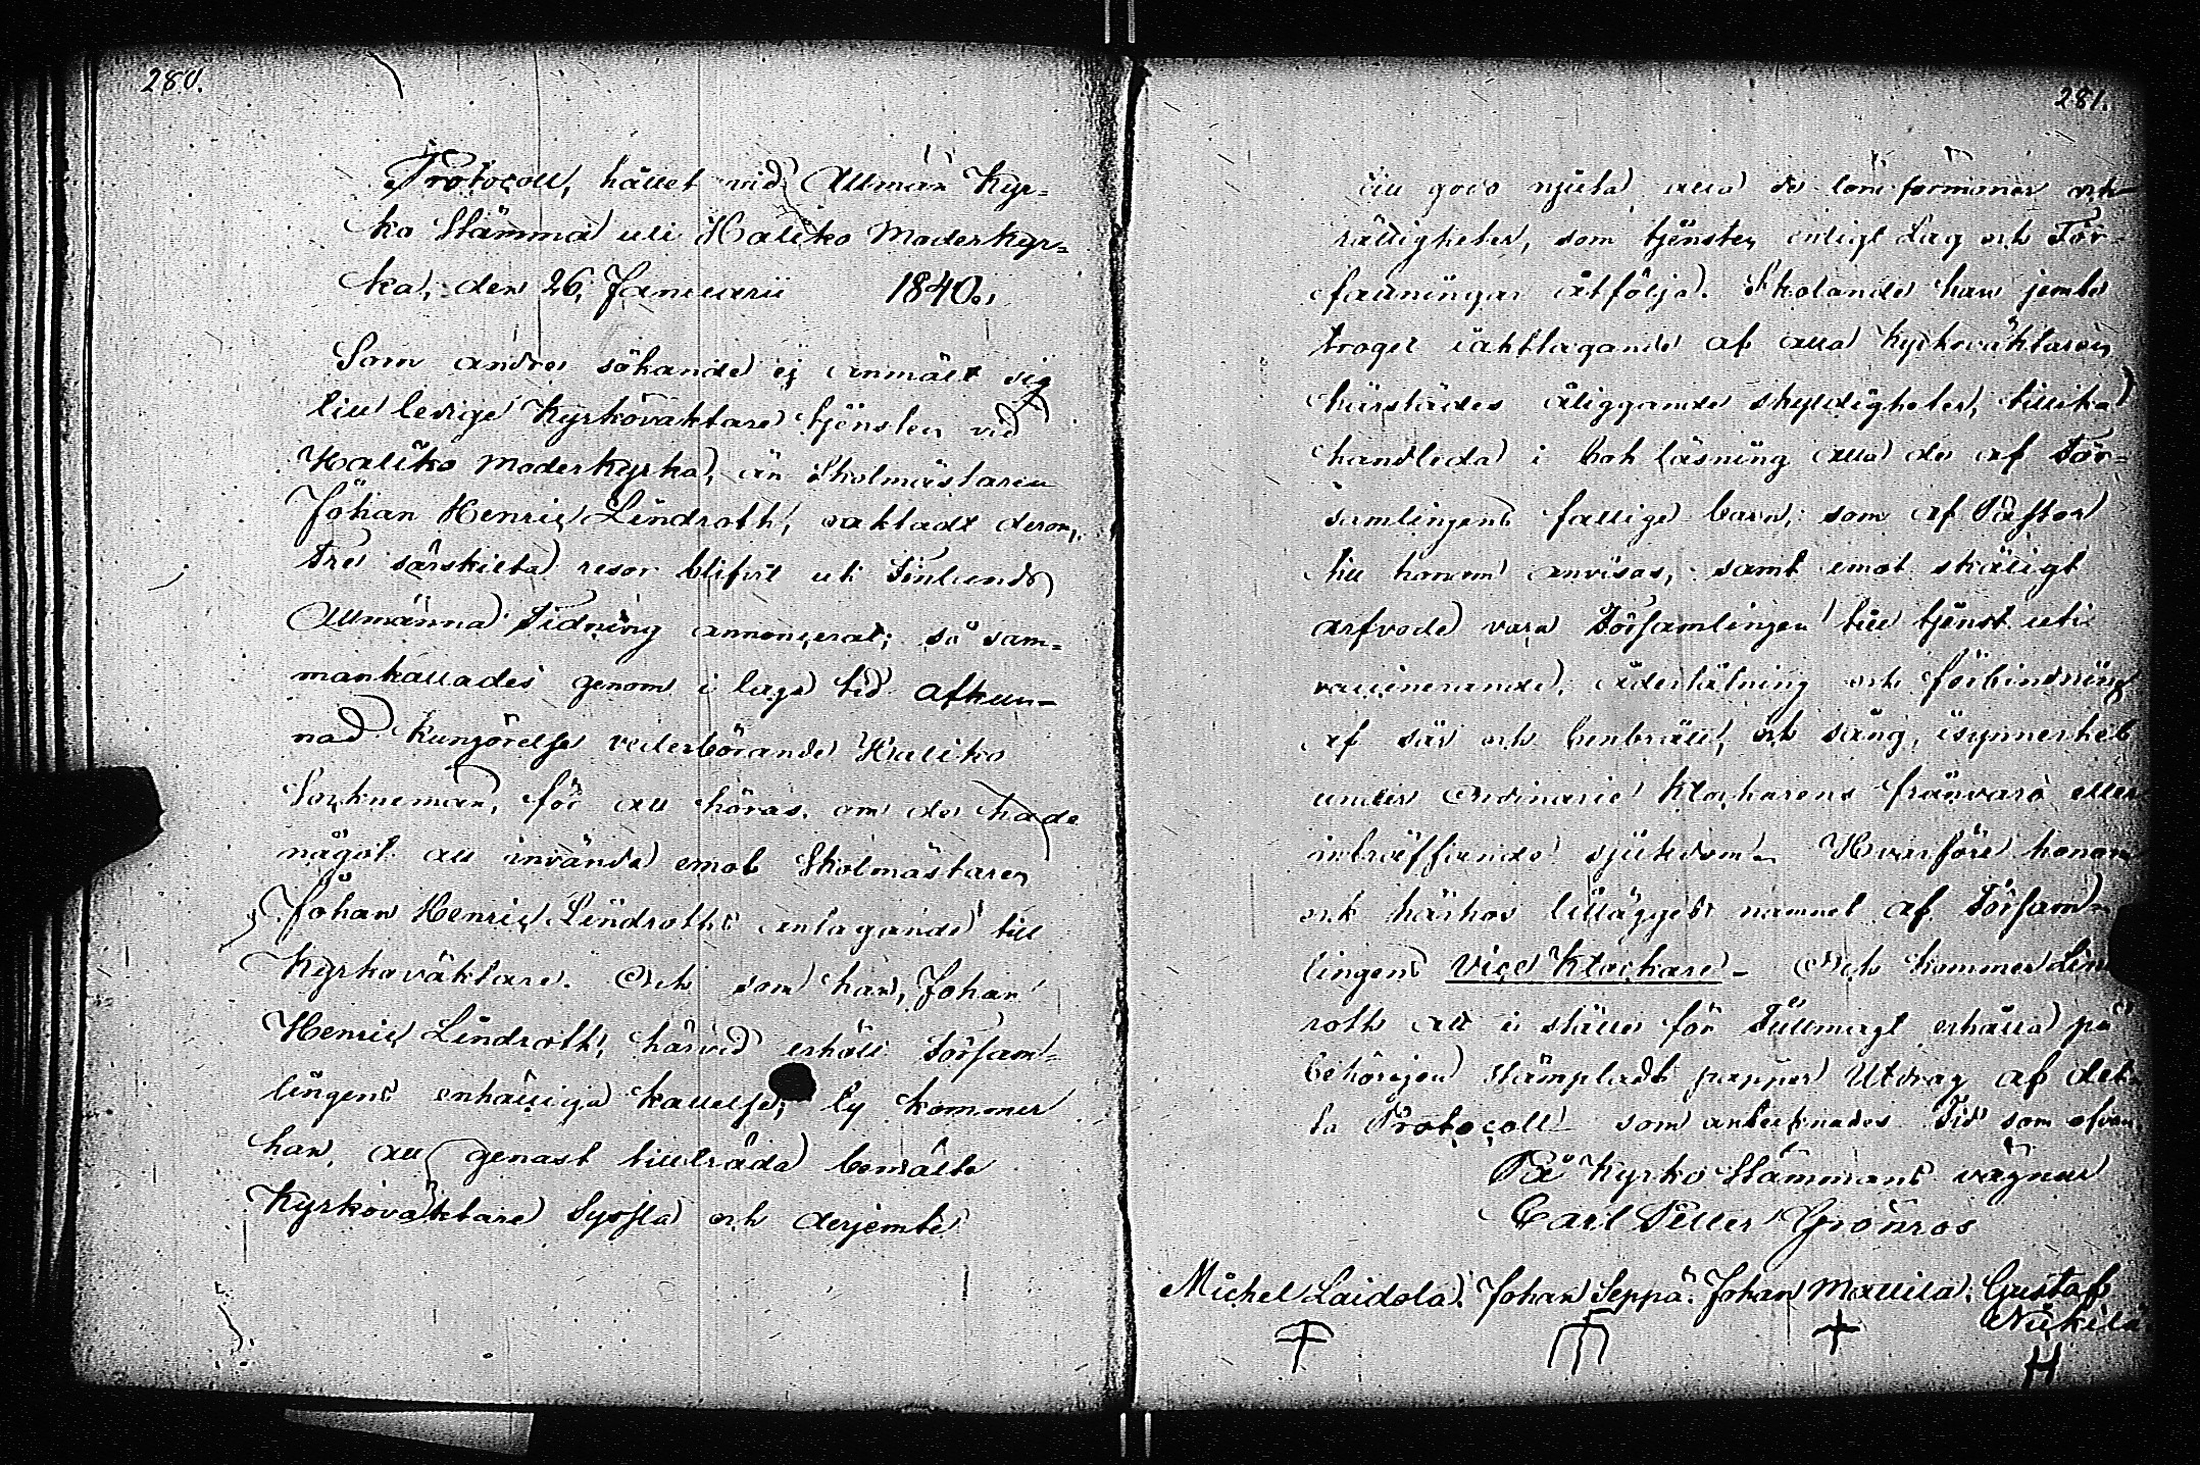 280.
Protocoll, hållet vid Allmän Kyr=
ko Stämma uti Haliko Moderkyr=
ka, den 26 Januarii 1840.
Som andre sökande ej anmält sig
till ledige Kyrkoväktare tjensten vid
Haliko Moderkyrka, än Skolmästaren
Johan Henric Lindroth, oaktadt derom,
tre särskilta resor blifvit uti Finlands
Allmänna Tidning annonçerat; så sam=
mankallades genom i laga tid afkun-
nad kungörelse vederbörande Haliko
Socknemän, för att höras, om de hade
något att invända emot Skolmästaren
Johan Henric Lindroths antagande till
Kyrkoväktare. Och som han, Johan
Henric Lindroth, härvid erhöll Försam=
lingens enhälliga kallelse; ty kommer
han, att genast tillträda bemälte
Kyrkoväktare Syssla och derjemte
281.
till godo njuta alla de löne förmoner och
rättigheter, som tjensten enligt Lag och För=
fattningar åtfölja. Skolande han jemte
troget iakttagande af alla Kyrkoväktaren
härstädes åliggande skyldigheter, tillika
handleda i bok läsning alla de af För=
samlingens fattige barn, som af Pastor
till honom anvisas, samt emot skäligt
arfvode vara Församlingen till tjenst uti
vaccinerande, åderlåtning och förbindning
af sår och benbrått, och sång, isynnerhet
under Ordinarie Klockarens frånvaro eller
inträffande sjukdom. Hvarföre honom
och härhos tillägges namnet af Försam=
lingens Vice Klockare - Och kommer Lind
roth att i stället för Fullmagt erhålla på
behörigen stämpladt papper Utdrag af det=
ta Protocoll som antecknades Tid som ofvan
På Kyrko Stämmans vägnar
Carl Petter Grönros
Michel Laidola. Johan Seppä. Johan Mattila. Gustaf
Nickilä
H